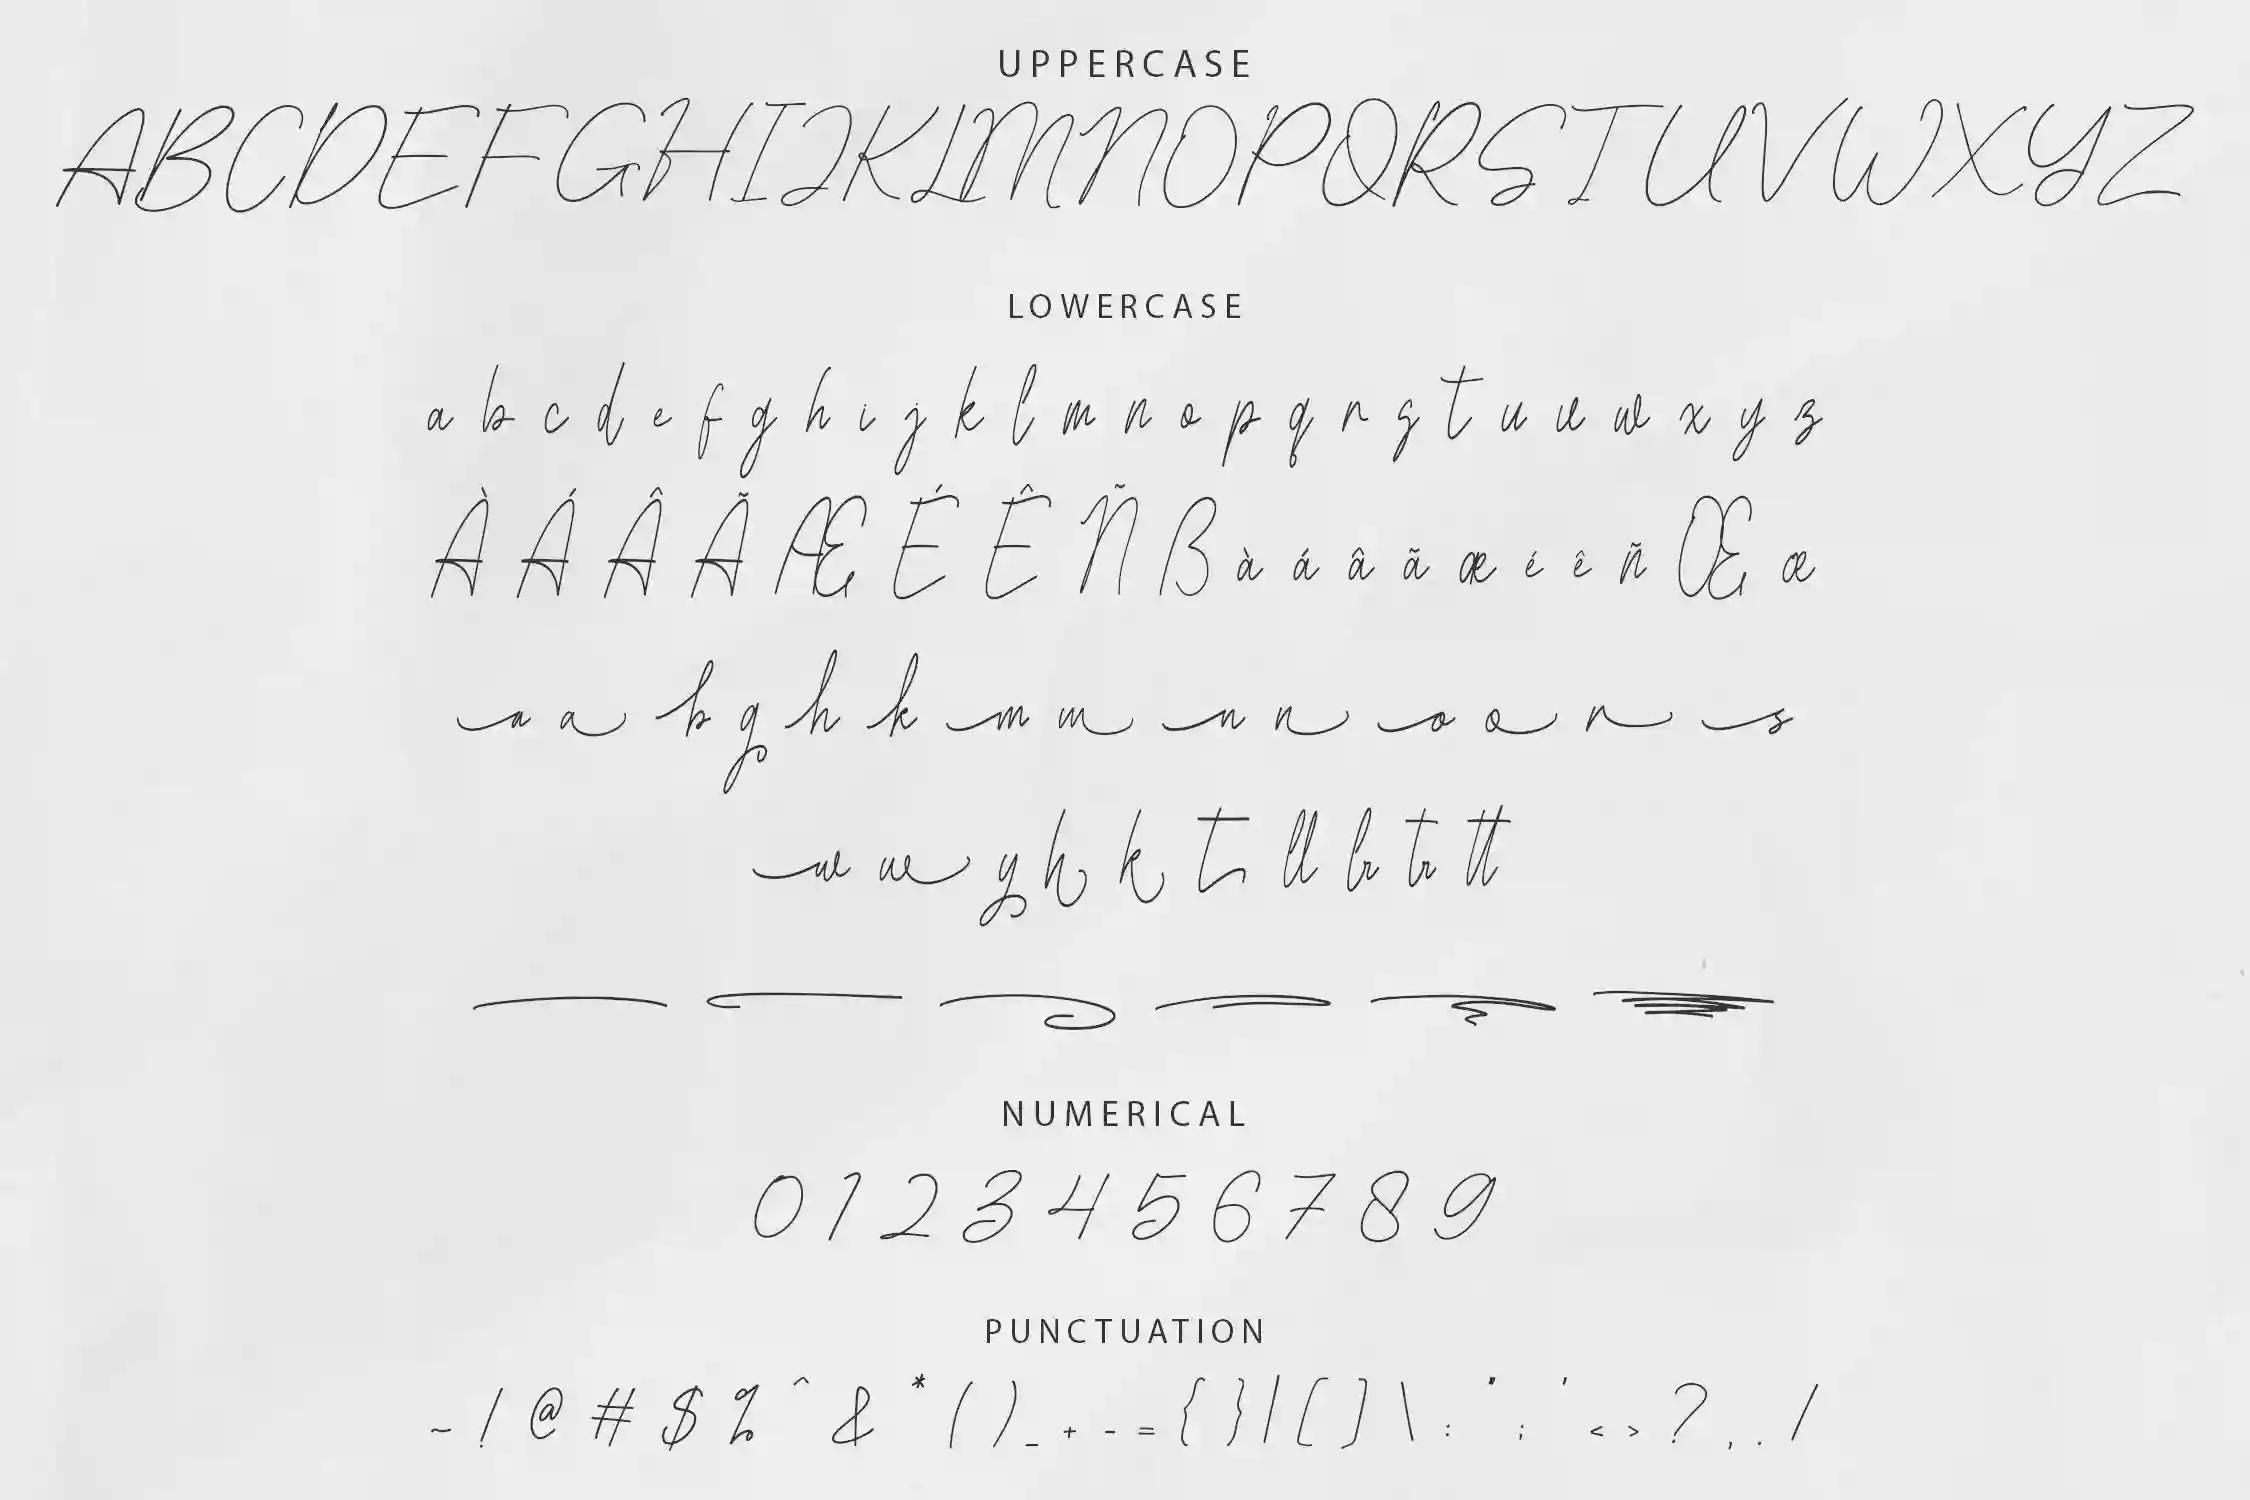 UPPERCASE
ABCDEFGHIJKLMNOPQRSTUVWXYZ
LOWERCASE
a b c d e f g h i j k l m n o p q r s t u v w x y z
À Á Â Ã Æ É Ê Ñ ß à á â ã æ é ê ñ Œ œ
a a b g h k m m n n o o r s
w w y h k t ll br tr tt
NUMERICAL
0 1 2 3 4 5 6 7 8 9
PUNCTUATION
~ ! @ # $ % ^ & * ( ) _ + - = { } | [ ] \ : " ; ' < > ? , . /